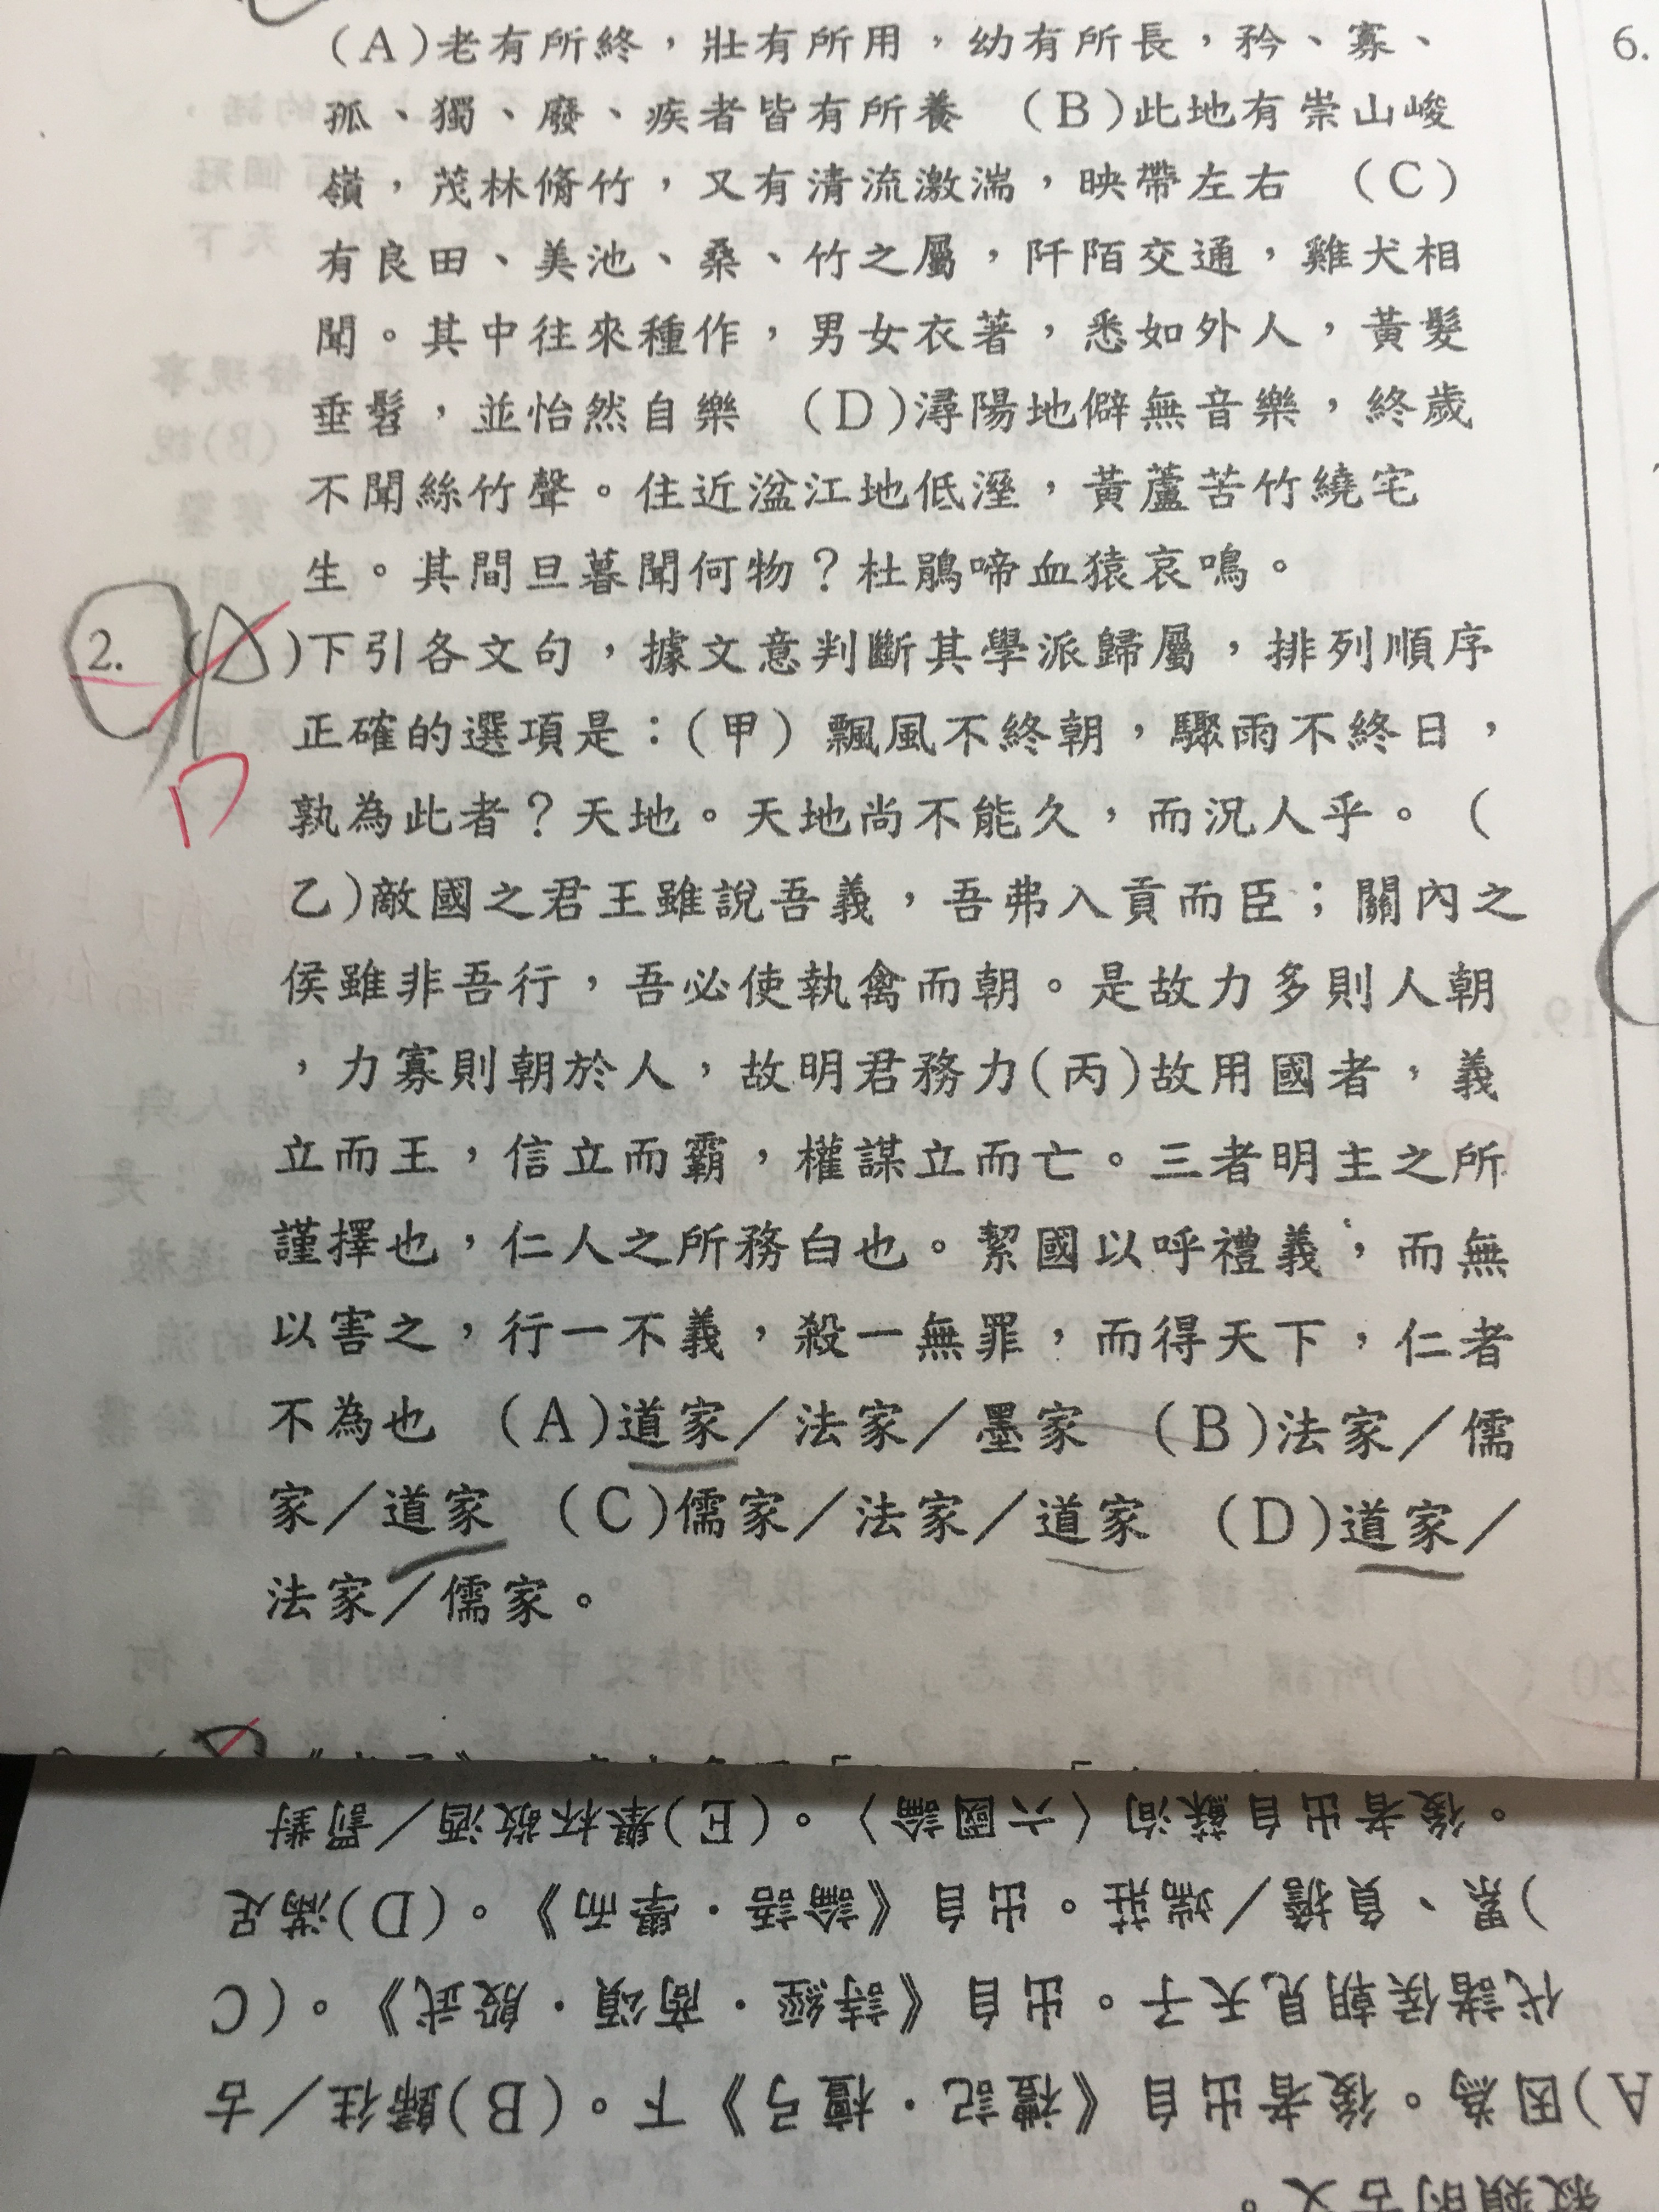 (A)老有所終，壯有所用，幼有所長，矜、寡、
孤、獨、廢、疾者皆有所養 (B)此地有崇山峻
嶺，茂林脩竹，又有清流激湍，映帶左右 (C)
有良田、美池、桑、竹之屬，阡陌交通，雞犬相
聞。其中往來種作，男女衣著，悉如外人，黃髮
垂髫，並怡然自樂 (D)潯陽地僻無音樂，終歲
不聞絲竹聲。住近湓江地低溼，黃蘆苦竹繞宅
生。其間旦暮聞何物？杜鵑啼血猿哀鳴。
2. ( )下引各文句，據文意判斷其學派歸屬，排列順序
正確的選項是：(甲) 飄風不終朝，驟雨不終日，
孰為此者？天地。天地尚不能久，而況人乎。(
乙)敵國之君王雖說吾義，吾弗入貢而臣；關內之
侯雖非吾行，吾必使執禽而朝。是故力多則人朝
，力寡則朝於人，故明君務力(丙)故用國者，義
立而王，信立而霸，權謀立而亡。三者明主之所
謹擇也，仁人之所務白也。絜國以呼禮義，而無
以害之，行一不義，殺一無罪，而得天下，仁者
不為也 (A)道家／法家／墨家 (B)法家／儒
家／道家 (C)儒家／法家／道家 (D)道家／
法家／儒家。
D
6.
敘類的古文。
A)因為。後者出自《禮記．檀弓》下。(B)歸往／古
代諸侯朝見天子。出自《詩經．商頌．殷武》。(C
)累、負擔／端莊。出自《論語．學而》。(D)滿足
。後者出自蘇洵〈六國論〉。(E)舉杯敬酒／罰對